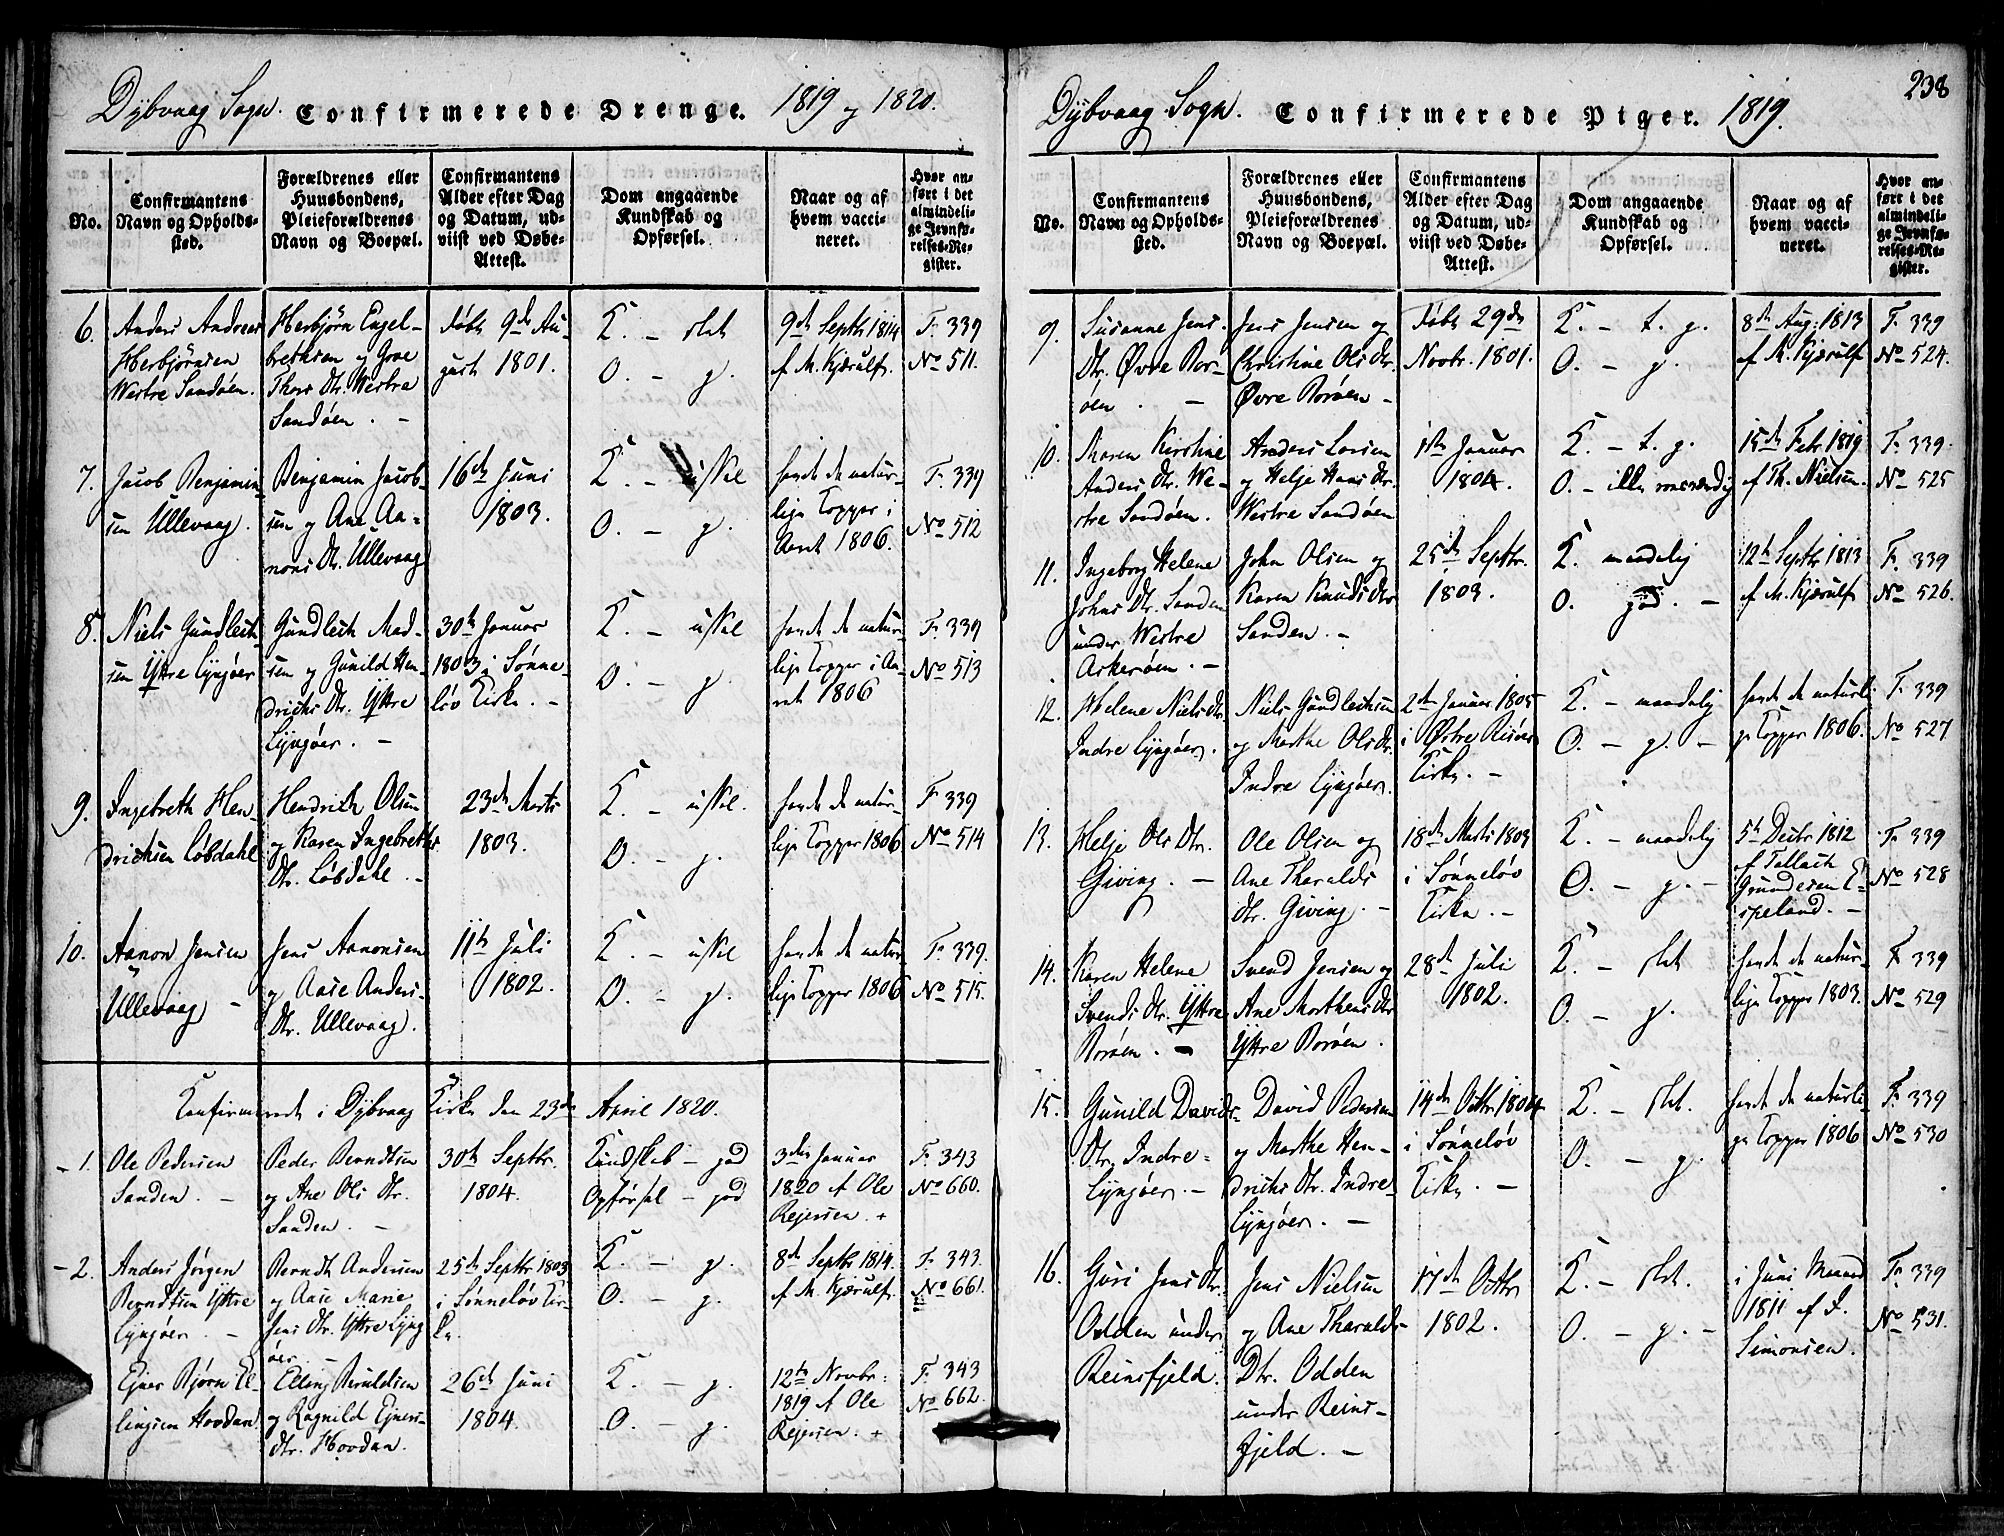 Dybvaag Sogn. Confirmerede Drenge. 1819 og 1820.
No.
Confirmantens
Navn og Opholds-
sted.
Forældrenes eller
Huusbondens,
Pleieforældrenes
Navn og Boepæl.
Confirmantens
Alder efter Dag
og Datum, ud-
viist ved Døbe-
Attest.
Dom angaaende
Kundskab og
Opførsel.
Naar og af
hvem vacci-
neret.
Hvor an-
ført i det
almindeli-
ge Jevnfø-
relses-Re-
gister.
6.
Anders Andreas
Herbjörnsen
Westre Sandöen.
Herbjörn Engel-
brethsen og Groe
Thors Dtr. Westre
Sandöen. -
Födt 9de Au-
gust 1801.
K. - slet
O. - g.
9de Septbr 1814
af M. Kjærulf.
F. 339
No 511.
7.
Jacob Benjamin-
sen Ullevaag.
Benjamin Jacob-
sen og Ane Aa-
nons Dtr. Ullevaag
16de Juni
1803.
K. - usel
O. - g.
havde de natur-
lige Kopper i
Aaret 1806.
F. 339
No 512
8.
Niels Gundleik-
sen Yttre Lyngöer
Gundleik Mad-
sen og Gunild Hen-
drichs Dtr. Yttre
Lyngöer. -
30te Januar
1803 i Sönne-
löv Kirke. -
K. - usel
O. - g.
havde de natur-
lige Kopper i Aa-
ret 1806
F. 339
No 513
9.
Ingebreth Hen-
drichsen Löbdahl
Hendrich Olsen
og Karen Ingebreths
Dtr. Löbdahl. -
23de Marts
1803.
K. - usel.
O. - g.
havde de natur-
lige Kopper 1806
F 339
No 514
10.
Aanon Jensen
Ullevaag -
Jens Aanonsen
og Aase Anders-
Dtr. Ullevaag.
11te Juli
1802.
K. - usel
O. - g.
havde de natur-
lige Kopper 1806
F. 339.
No 515.
Confirmeret i Dybvaag Kirke den 23de April 1820.
- 1.
Ole Pedersen
Sanden. -
Peder Berndtsen
og Ane Ols Dtr.
Sanden. -
30te Septbr.
1804.
Kundskab - god
Opförsel - god
3die Januar
1820 af Ole
Rejersen. +
F. 343
No 660.
- 2.
Anders Jörgen
Berndtsen Yttre
Lyngöer. -
Berndt Andersen
og Aase Marie
Jens Dtr. Yttre Lyng
öer. -
25de Septbr 1803
i Sönnelöv Kir-
ke.
K. - g.
O. - g.
8de Septbr 1814.
af M. Kjærulf.
F. 343.
No 661.
Ejner Björn El-
lingsen Hovdan.
Elling Beruldsen
og Ragnild Ejners-
Dtr. Hovdan.
26de Juni
1804.
K. - g.
O. - g.
12te Novbr.
1819 af Ole
Rejersen. +
F. 343
No 662.
Dybvaag Sogn. Confirmerede Piger. 1819.
238
No.
Confirmantens
Navn og Opholds-
sted.
Forældrenes eller
Huusbondens,
Pleieforældrenes
Navn og Boepæl.
Confirmantens
Alder efter Dag
og Datum, ud-
viist ved Døbe-
Attest.
Dom angaaende
Kundskab og
Opførsel.
Naar og af
hvem vacci-
neret.
Hvor an-
ført i det
almindeli-
ge Jevnfø-
relses-Re-
gister.
9.
Susanne Jens
Dtr. Övre Bor-
öen. -
Jens Jensen og
Christine Ols Dtr.
Övre Boröen -
Födt 29de
Novbr. 1801.
K. - t. g.
O. - g.
8de Aug: 1813
af M. Kjærulf
F. 339
No 524.
10.
Maren Kirstine
Anders Dtr. We-
stre Sandöen.
Anders Larsen
og Helje Hans Dtr.
Westre Sandöen
1ste Januar
1804.
K. - t. g.
O. - ille
15de Febr 1819
af Th. Nielsen.
F. 339.
No 525
11.
Ingeborg Helene
Johns Dtr. Sanden
under Westre
Askeröen. -
John Olsen og
Karen Knuds Dtr
Sanden. -
25de Septbr.
1803.
K. maadelig
O. god. -
12te Septbr 1813
af M. Kjærulf
F. 339
No 526.
12.
Helene Niels Dtr.
Indre Lyngöer.
Niels Gundleiksen
og Marthe Ols Dtr.
Indre Lyngöer.
2den Januar 1805
i Östre Risöer
Kirke. -
K. - maadelig
O. - g. -
havde de naturli-
ge Kopper 1806.
F. 339
No 527
13.
Helje Ols Dtr.
Giving. -
Ole Olsen og
Ane Tharalds
Dtr. Giving. -
18de Marts 1803
i Sönnelöv
Kirke. -
K. - maadelig
O. - g. -
5te Decbr 1812
af Tellach
Grundesen E-
speland. -
F. 339
No 528
14.
Karen Helene
Svends Dtr. Yttre
Boröen. -
Svend Jensen og
Ane Marthens Dtr
Yttre Boröen.
28de Juli
1802.
K. - slet
O. - g.
havde de natur-
lige Kopper 1803.
F 339
No 529
15.
Gunild Davids-
Dtr. Indre-
Lyngöer. -
David Pedersen
og Marthe Hen-
drichs Dtr. Indre-
Lyngöer. -
14de Octbr 1804
i Sönnelöv
Kirke. -
K. - slet.
O. - g.
havde de naturli-
ge Kopper 1806
F. 339
No 530
16.
Guri Jens Dtr.
Odden under
Reinsfjeld.
Jens Nielsen
og Ane Tharalds-
Dtr. Odden
under Reins-
fjeld. -
17de Octbr
1802.
K. - slet.
O. - g. -
i Juni Maaned
1811 af J.
Simonsen.
F. 339
No 531.